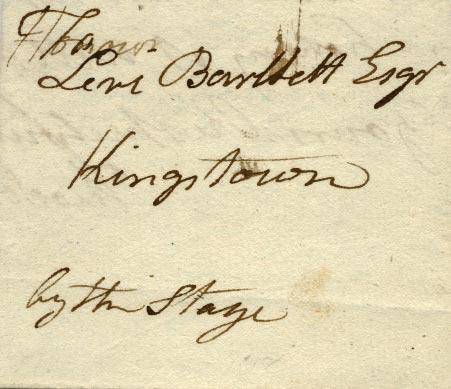 Levi Bartlett Esqr
Kingstown
by the Stage